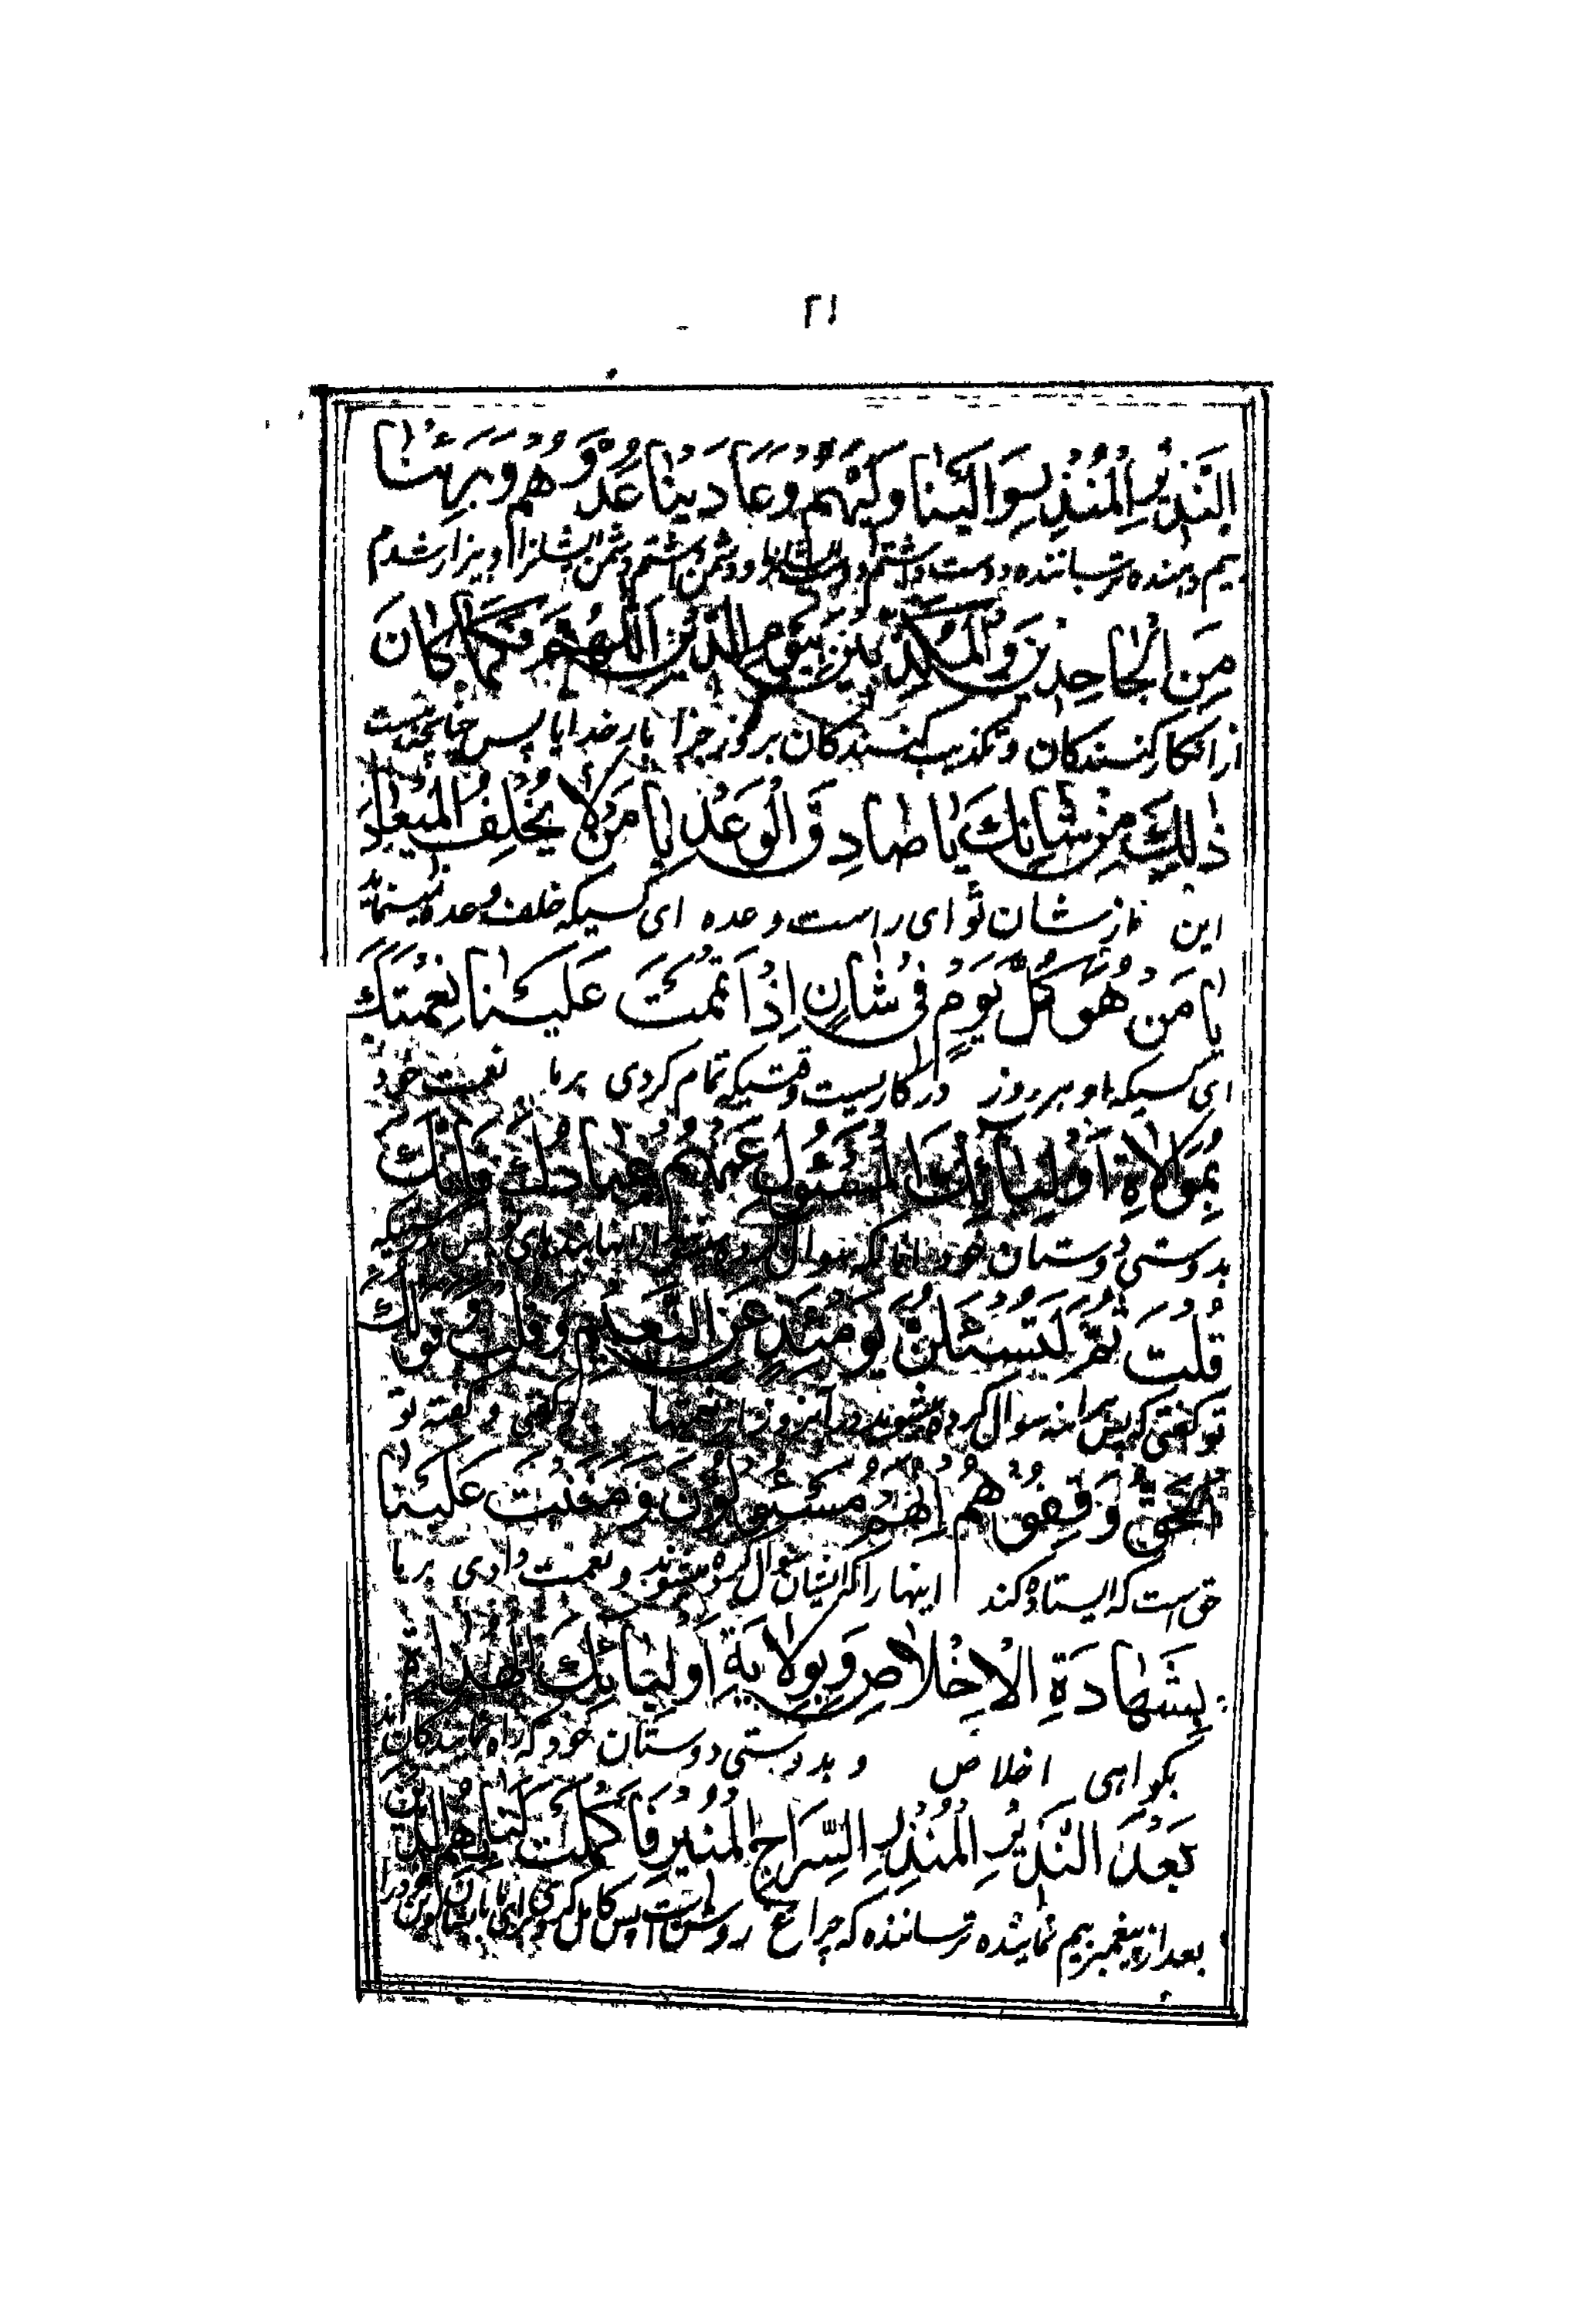 ۲۱
النَّذِيرِ الْمُنْذِرِ وَالَيْنَا وَلِيَّهُمْ وَعَادَيْنَا عَدُوَّهُمْ وَبَرِئْنَا
بیم دهنده ترساننده دوست داشتم و دشمن ایشانرا و بیزار شدم
مِنَ الْجَاحِدِينَ وَالْمُكَذِّبِينَ بِيَوْمِ الدِّينِ اللّٰهُمَّ فَكَمَا كَانَ
از انکار کنندکان و تکذیب کنندکان بروز جزا بار خدایا پس چنانچه
ذٰلِكَ مِنْ شَانِكَ يَا صَادِقَ الْوَعْدِ يَا مَنْ لَا يُخْلِفُ الْمِيعَادَ
این از شان تو ای راست وعده ای کسیکه خلف وعده نمینماید
يَا مَنْ هُوَ كُلَّ يَوْمٍ فِى شَانٍ اِذْ اَتْمَمْتَ عَلَيْنَا نِعْمَتَكَ
ای کسیکه او هر روز در کاریست وقتیکه تمام کردی بر ما نعمت خود
بِمُوَالَاةِ اَوْلِيَائِكَ الْمَسْئُولِ عَنْهُمْ عِبَادُكَ فَاِنَّكَ
بدوستی دوستان خود که سوال کرده
قُلْتَ ثُمَّ لَتُسْئَلُنَّ يَوْمَئِذٍ عَنِ النَّعِيمِ وَقُلْتَ وَقَوْلُكَ
تو کفتی که پس سوال کرده میشوند در آنروز از نعمتها و کفتی و کفته تو
الْحَقُّ وَقِفُوهُمْ اِنَّهُمْ مَسْئُولُونَ وَمَنَنْتَ عَلَيْنَا
حق است که ایستاده کند اینها را که ایشان سوال کرده میشوند و نعمت دادی بر ما
بِشَهَادَةِ الْاِخْلَاصِ وَبِوِلَايَةِ اَوْلِيَائِكَ الْهُدَاةِ
بکواهی اخلاص و بدوستی دوستان خود که راه نمایندکان اند
بَعْدَ النَّذِيرِ الْمُنْذِرِ السِّرَاجِ الْمُنِيرِ فَاَكْمَلْتَ لَنَا بِهِمُ الدِّينَ
بعد از پیغمبر بیم نماینده ترساننده که چراغ روشن است پس کامل کردی